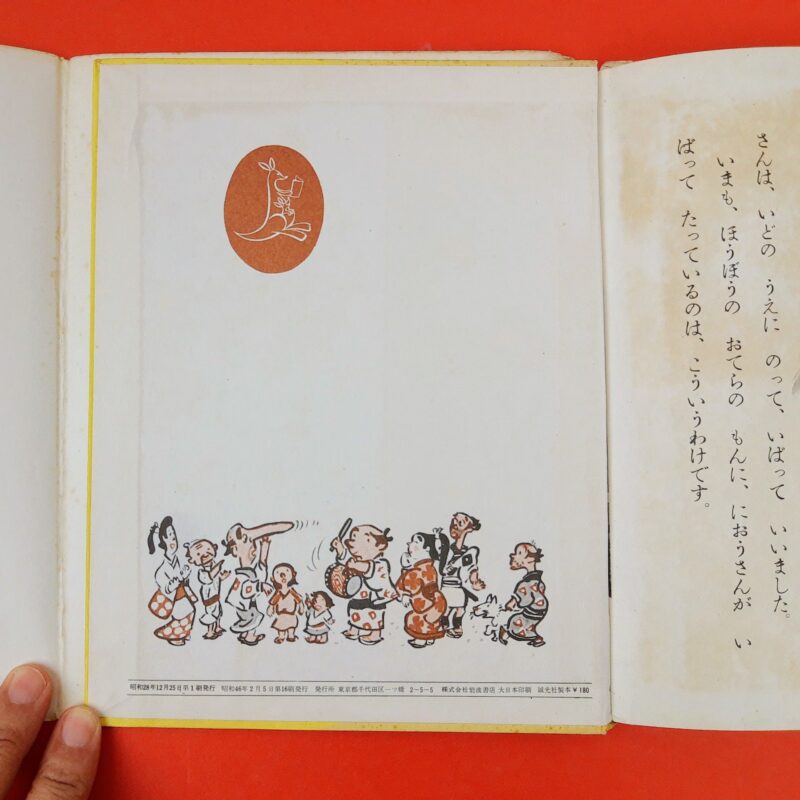 さんは、いどの うえに のって、いばって いいました。
いまも、ほうぼうの おてらの もんに、におうさんが い
ばって たっているのは、こういうわけです。
昭和28年12月25日第1刷発行 昭和46年2月5日第16刷発行 発行所 東京都千代田区一ツ橋 2-5-5 株式会社岩波書店 大日本印刷 誠光社製本 ¥180